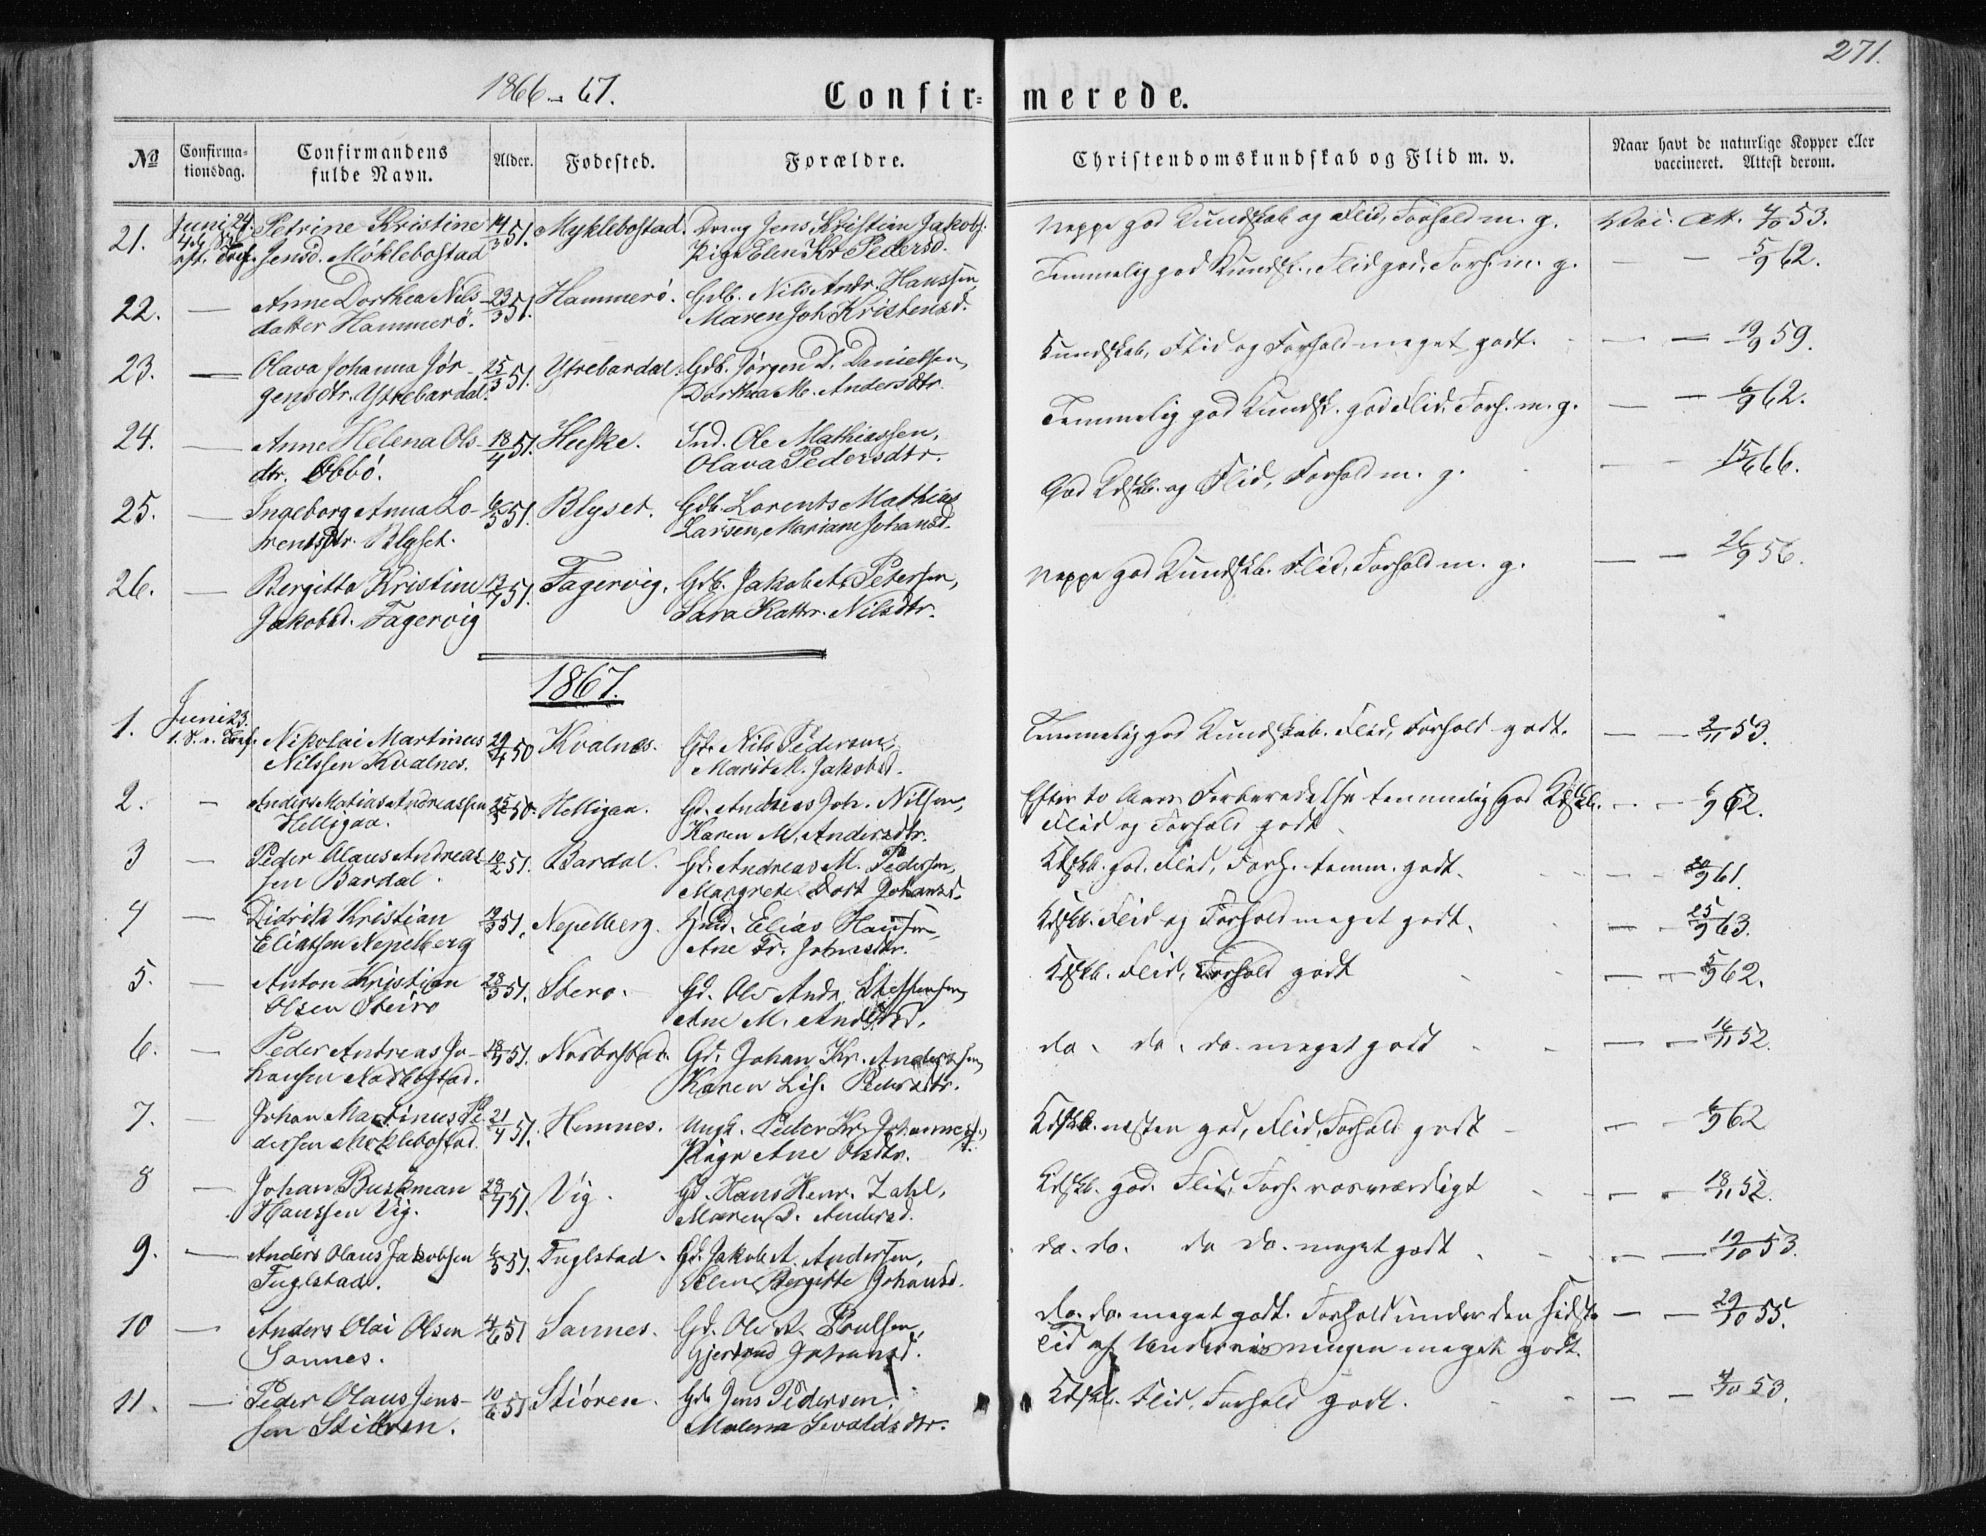 271.
1866-67.
Confir-merede.
No
Confirma-tionsdag.
Confirmandens fulde Navn.
Alder.
Fødested.
Forældre.
Christendomskundskab og Flid m. v.
Naar havt de naturlige Kopper eller vaccineret. Attest derom.
21. Juni 24 Petrine Kristine 14/3 51. Myklebostad. Dreng Jens Kristian Jakobs. Neppe god Kundskab og Flid, Forhold m. g. Vac. Att. 4/10 53.
Jensd. Møklebostad Pige Elen Kr Pedersd.
22. — Anne Dorthea Nils- 23/3 51. Hammerø. Gdb. Nils Andr. Hanssen, Temmelig god Kundsk., Flid god, Forh. m. g. — — 5/9 62.
datter Hammerø. Maren Joh Kristensd.
23. — Olava Johanna Jør- 25/3 51. Ytrebardal. Gdb. Jørgen D. Danielsen, Kundskab, Flid og Forhold meget godt. — — 19/9 59.
gensdtr. Ytrebardal. Dorthea M. Andersdtr
24. — Anne Helena Ols- 18/4 51. Huske. Ind. Ole Mathiassen, Temmelig god Kundsk. god Flid, Forh. m. g. — — 6/9 62.
dtr. Øbbø. Olava Pedersdtr.
25. — Ingeborg Anna Lo- 6/5 51. Blyset. Gdb. Lorents Mathias God Kdskb. og Flid, Forhold m. g. — — 15/6 66.
rentsdtr. Blyset. Larsen, Mariane Johansd.
26. — Bergitta Kristine 17/7 51. Fagervig. Gdb. Jakob A. Petersen, Neppe god Kundskb. Flid, Forhold m. g. — — 26/9 56.
Jakobsd. Fagervig Sara Kattr. Nilsdtr.
1867.
1. Juni 23. Nikolai Martinus 29/4 50 Kvalnes. Gb. Nils Pedersen, Temmelig god Kundskab. Flid, Forhold godt. — — 2/11 53.
Nilssen Kvalnes. Marit M. Jakobsd.
2. — Anders Matias Andreassen 25/5 50. Helligaa. Gd. Andreas Joh. Nilsen, Efter to Aars Forberedelse temmelig god Kdskb. — — 6/9 62.
Helligaa. Karen M. Andersdtr. Flid og Forhold godt
3 — Peder Olaus Andreas 10/2 51. Bardal. Gd. Andreas M. Pedersen, Kdskb. god. Flid, Forh. temm. godt. — — 20/9 61.
sen Bardal. Margrete Dort Johansd.
4 — Didrik Kristian 12/3 51. Nepelberg. Huus. Elias Hansen, Kdskb. Flid og Forhold meget godt. — — 25/9 63.
Eliassen Nepelberg Ane Fr. Johnsdtr.
5. — Anton Kristian 28/3 51. Stero. Gd. Ole Andr. Steffensen, Kdskb. Flid, Forhold godt — — 5/9 62.
Olsen Steiro Ane M. Andersd.
6. — Peder Andreas Jo- 18/4 51. Norbostad. Gd. Johan Kr. Andersen, do. do. do. meget godt — — 16/11 52.
hansen Norbostad. Karen Lis. Pedersdtr.
7. — Johan Martinus Pe 21/4 51. Hemnes. Ungk. Peder Kr. Johannes., Kdskb. nesten god, Flid, Forhold godt — — 6/9 62
dersen Møklebostad Pige Ane Olsdtr.
8 — Johan Buskman 28/4 51. Vig. Gd. Hans Henr. Zahl, Kdskb. god. Flid, Forh. rosværdigt — — 18/11 52.
Hanssen Vig. Maren D. Andersd.
9. — Anders Olaus Jakobsen 6/5 51. Fuglstad. Gd. Jakob A. Andersen, do. do. do do. meget godt — — 19/10 53.
Fuglstad. Elen Bergitte Johansd.
10 — Anders Olai Olsen 4/6 51 Sannes. Gd. Ole A. Poulsen, do. do. meget godt. Forhold under den sidste — — 29/10 55.
Sannes. Gjertrud Johansd. Tid af Undervisningen meget godt.
11. — Peder Olaus Jens- 10/6 51 Stiøren. Gd. Jens Pedersen, Kdskb. Flid, Forhold godt. — — 4/10 53.
sen Stiøren. Malena Sivaldsdtr.